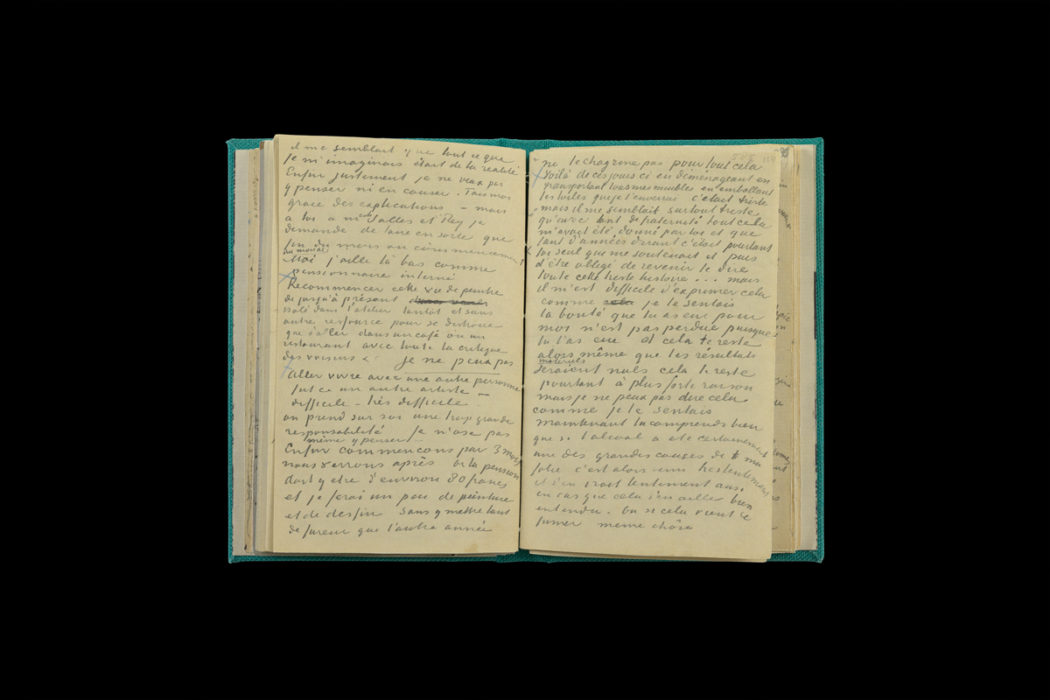 il me semblait que tout ce que
je m'imaginais était de la réalité
Enfin justement je ne veux pas
y penser ni en causer. Fais moi
grace des explications – mais
à toi à mrs Salles et Rey je
demande de faire en sorte que
fin du mois ou commencement
du mois mai
j'aille là bas comme
pensionnaire interné
Recommencer cette vie de peintre
de jusqu'à présent
isolé dans l'atelier tantôt et sans
autre ressource pour se distraire
que d'aller dans un café ou un
restaurant avec toute la critique
des voisins &c. je ne peux pas
Aller vivre avec une autre personne
fut ce un autre artiste –
difficile – très difficile –
on prend sur soi une trop grande
responsabilité Je n'ose pas
même y penser.
Enfin commençons par 3 mois
nous verrons après or la pension
doit y etre d'environ 80 francs
et je ferai un peu de peinture
et de dessin sans y mettre tant
de fureur que l'autre année
ne te chagrine pas pour tout cela
Voilà de ces jours ci en déménageant en
transportant tous mes meubles en emballant
les toiles que je t'enverrai c'était triste
mais il me semblait surtout triste
qu'avec tant de fraternité tout cela
m'avait été donné par toi et que
tant d'années durant c'était pourtant
toi seul qui me soutenait et puis
d'être obligé de revenir te dire
toute cette triste histoire... mais
il m'est difficile d'exprimer cela
comme je le sentais
la bonté que tu as eue pour
moi n'est pas perdue puisque
tu l'as eue et cela te reste
alors même que les résultats
materiels
seraient nuls cela te reste
pourtant à plus forte raison
mais je ne peux pas dire cela
comme je le sentais
maintenant tu comprends bien
que si l'alcool a été certainement
une des grandes causes de ma
folie c'est alors venu très lentement
et s'en irait lentement aussi
en cas que cela s'en aille bien
entendu. Ou si cela vient de
fumer même chôse